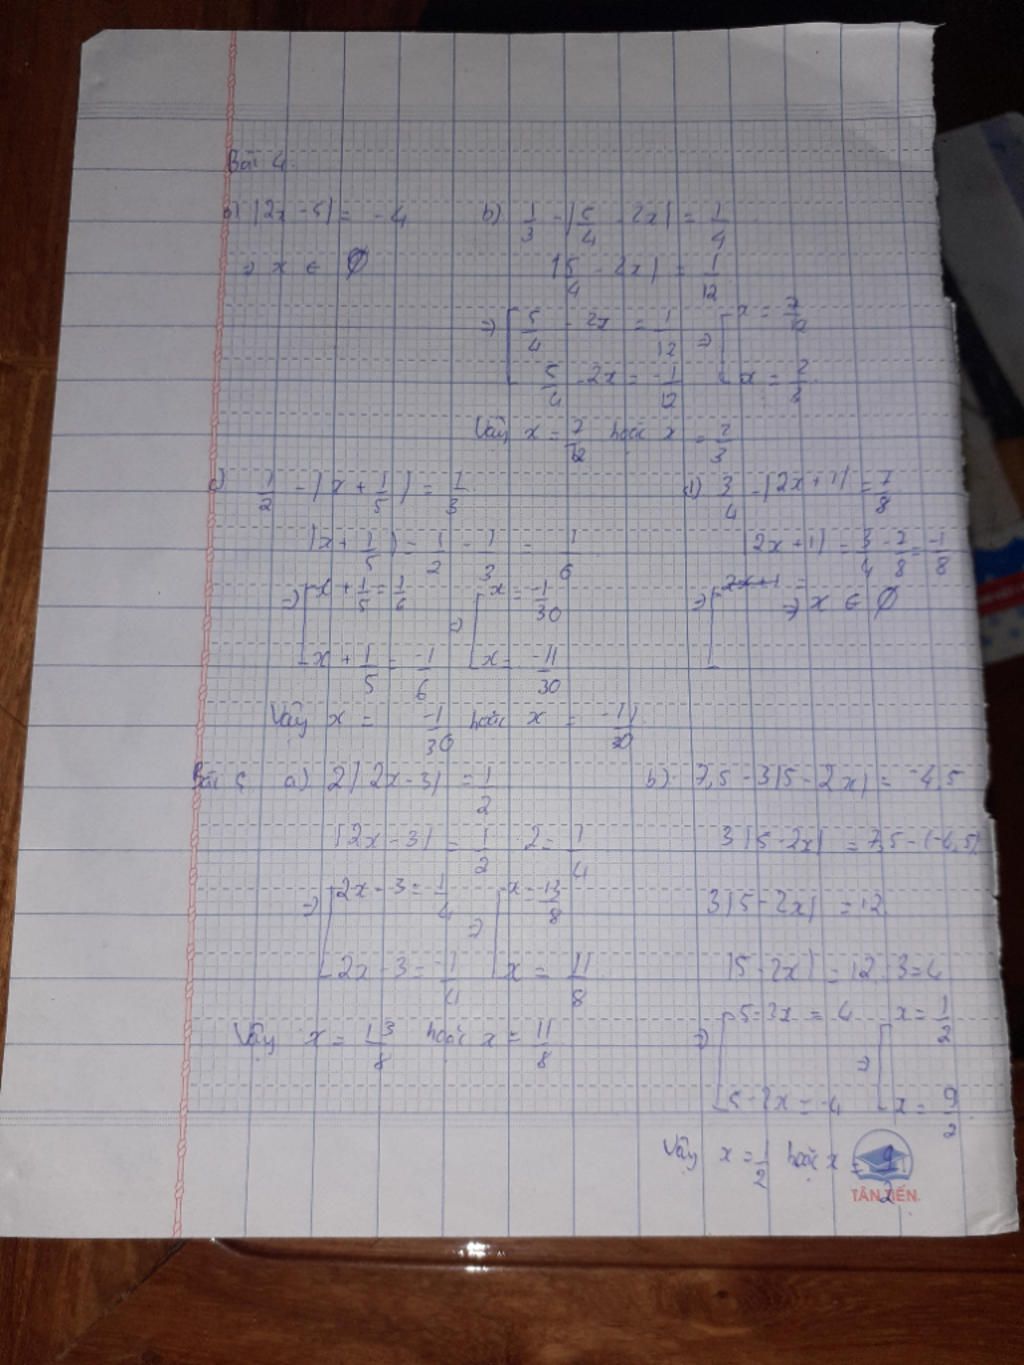 Bài 4.
a) |2x - 5| = -4
⇒ x ∈ Ø
b) 1/3 - |5/4 - 2x| = 1/4
|5/4 - 2x| = 1/12
⇒ [ 5/4 - 2x = 1/12 ⇒ [ x = 7/12
5/4 - 2x = -1/12 x = 2/3
Vậy x = 7/12 hoặc x = 2/3
c) 1/2 - |x + 1/5| = 1/3
|x + 1/5| = 1/2 - 1/3 = 1/6
⇒ [ x + 1/5 = 1/6 ⇒ [ x = -1/30
x + 1/5 = -1/6 x = -11/30
Vậy x = -1/30 hoặc x = -11/30
d) 3/4 - |2x + 1| = 7/8
|2x + 1| = 3/4 - 7/8 = -1/8
⇒ [ 2x + 1 =
⇒ x ∈ Ø
Bài 5 a) 2|2x - 3| = 1/2
|2x - 3| = 1/2 : 2 = 1/4
⇒ [ 2x - 3 = 1/4 ⇒ [ x = 13/8
2x - 3 = -1/4 x = 11/8
Vậy x = 13/8 hoặc x = 11/8
b) 7,5 - 3|5 - 2x| = -4,5
3|5 - 2x| = 7,5 - (-4,5)
3|5 - 2x| = 12
|5 - 2x| = 12 : 3 = 4
⇒ [ 5 - 2x = 4 ⇒ [ x = 1/2
5 - 2x = -4 x = 9/2
Vậy x = 1/2 hoặc x = 9/2
TÂN TIẾN